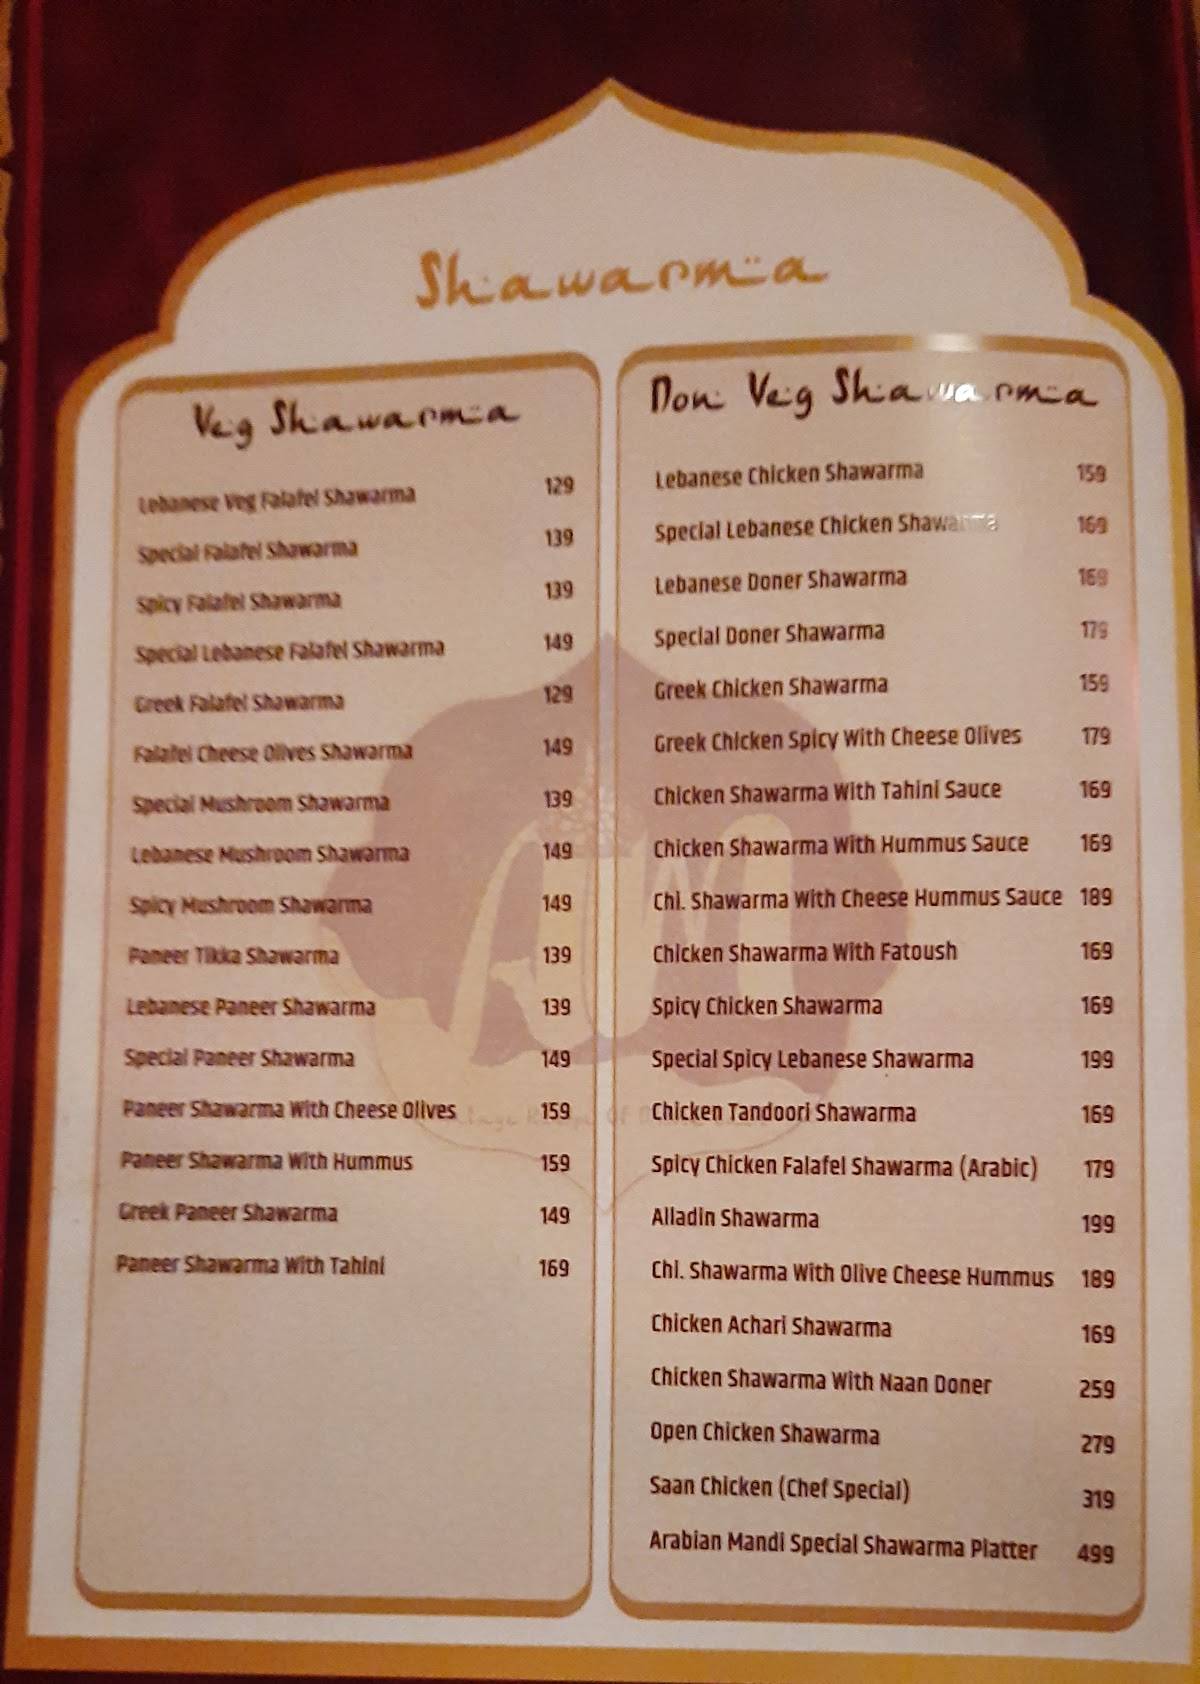 Shawarma
Veg Shawarma
Lebanese Veg Falafel Shawarma 129
Special Falafel Shawarma 139
Spicy Falafel Shawarma 139
Special Lebanese Falafel Shawarma 149
Greek Falafel Shawarma 129
Falafel Cheese Olives Shawarma 149
Special Mushroom Shawarma 139
Lebanese Mushroom Shawarma 149
Spicy Mushroom Shawarma 149
Paneer Tikka Shawarma 139
Lebanese Paneer Shawarma 139
Special Paneer Shawarma 149
Paneer Shawarma With Cheese Olives 159
Paneer Shawarma With Hummus 159
Greek Paneer Shawarma 149
Paneer Shawarma With Tahini 169
Non Veg Shawarma
Lebanese Chicken Shawarma 159
Special Lebanese Chicken Shawarma 169
Lebanese Doner Shawarma 169
Special Doner Shawarma 179
Greek Chicken Shawarma 159
Greek Chicken Spicy With Cheese Olives 179
Chicken Shawarma With Tahini Sauce 169
Chicken Shawarma With Hummus Sauce 169
Chi. Shawarma With Cheese Hummus Sauce 189
Chicken Shawarma With Fatoush 169
Spicy Chicken Shawarma 169
Special Spicy Lebanese Shawarma 199
Chicken Tandoori Shawarma 169
Spicy Chicken Falafel Shawarma (Arabic) 179
Alladin Shawarma 199
Chi. Shawarma With Olive Cheese Hummus 189
Chicken Achari Shawarma 169
Chicken Shawarma With Naan Doner 259
Open Chicken Shawarma 279
Saan Chicken (Chef Special) 319
Arabian Mandi Special Shawarma Platter 499